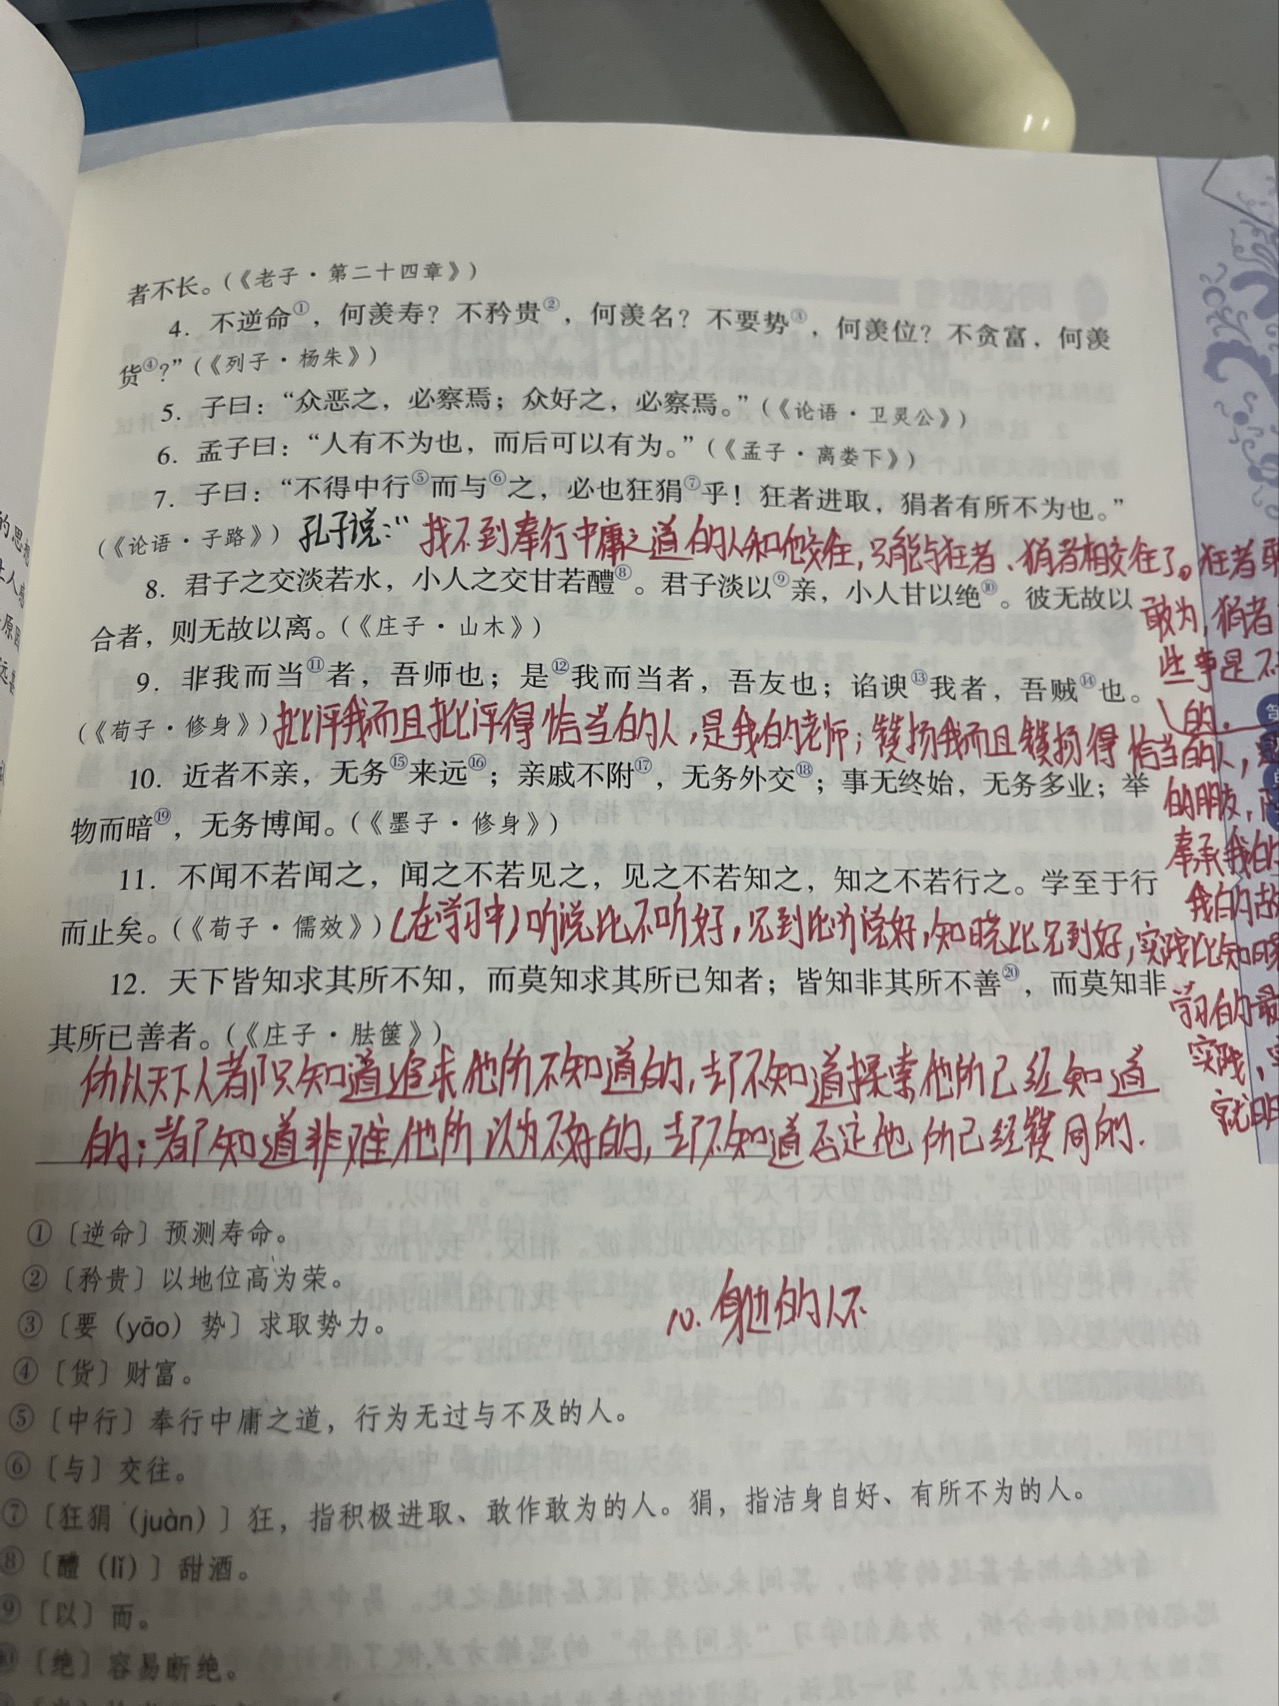 者不长。(《老子·第二十四章》)
4. 不逆命①，何羡寿？不矜贵②，何羡名？不要势③，何羡位？不贪富，何羡
货④?”(《列子·杨朱》)
5. 子曰：“众恶之，必察焉；众好之，必察焉。”(《论语·卫灵公》)
6. 孟子曰：“人有不为也，而后可以有为。”(《孟子·离娄下》)
7. 子曰：“不得中行⑤而与⑥之，必也狂狷⑦乎！狂者进取，狷者有所不为也。”
(《论语·子路》) 孔子说：“找不到奉行中庸之道的人和他交往，只能与狂者、狷者相交往了。狂者敢
8. 君子之交淡若水，小人之交甘若醴⑧。君子淡以⑨亲，小人甘以绝⑩。彼无故以
敢为，狷者
合者，则无故以离。(《庄子·山木》)
些事是不
9. 非我而当⑪者，吾师也；是⑫我而当者，吾友也；谄谀⑬我者，吾贼⑭也。
的.
(《荀子·修身》) 批评我而且批评得恰当的人，是我的老师；赞扬我而且赞扬得恰当的人，是
10. 近者不亲，无务⑮来远⑯；亲戚不附⑰，无务外交⑱；事无终始，无务多业；举
的朋友，
物而暗⑲，无务博闻。(《墨子·修身》)
奉承我的
11. 不闻不若闻之，闻之不若见之，见之不若知之，知之不若行之。学至于行
我的敌
而止矣。(《荀子·儒效》) (在学习中)听说比不听好，见到比听说好，知晓比见到好，实践比知晓
12. 天下皆知求其所不知，而莫知求其所已知者；皆知非其所不善⑳，而莫知非
学习的最
其所已善者。(《庄子·胠箧》)
实践，
所以天下人都只知道追求他所不知道的，却不知道探索他所已经知道
就明
的；都知道非难他所认为不好的，却不知道否定他所已经赞同的.
①〔逆命〕预测寿命。
②〔矜贵〕以地位高为荣。
10. 身边的人不
③〔要（yāo）势〕求取势力。
④〔货〕财富。
⑤〔中行〕奉行中庸之道，行为无过与不及的人。
⑥〔与〕交往。
⑦〔狂狷（juàn）〕狂，指积极进取、敢作敢为的人。狷，指洁身自好、有所不为的人。
⑧〔醴（lǐ）〕甜酒。
⑨〔以〕而。
⑩〔绝〕容易断绝。